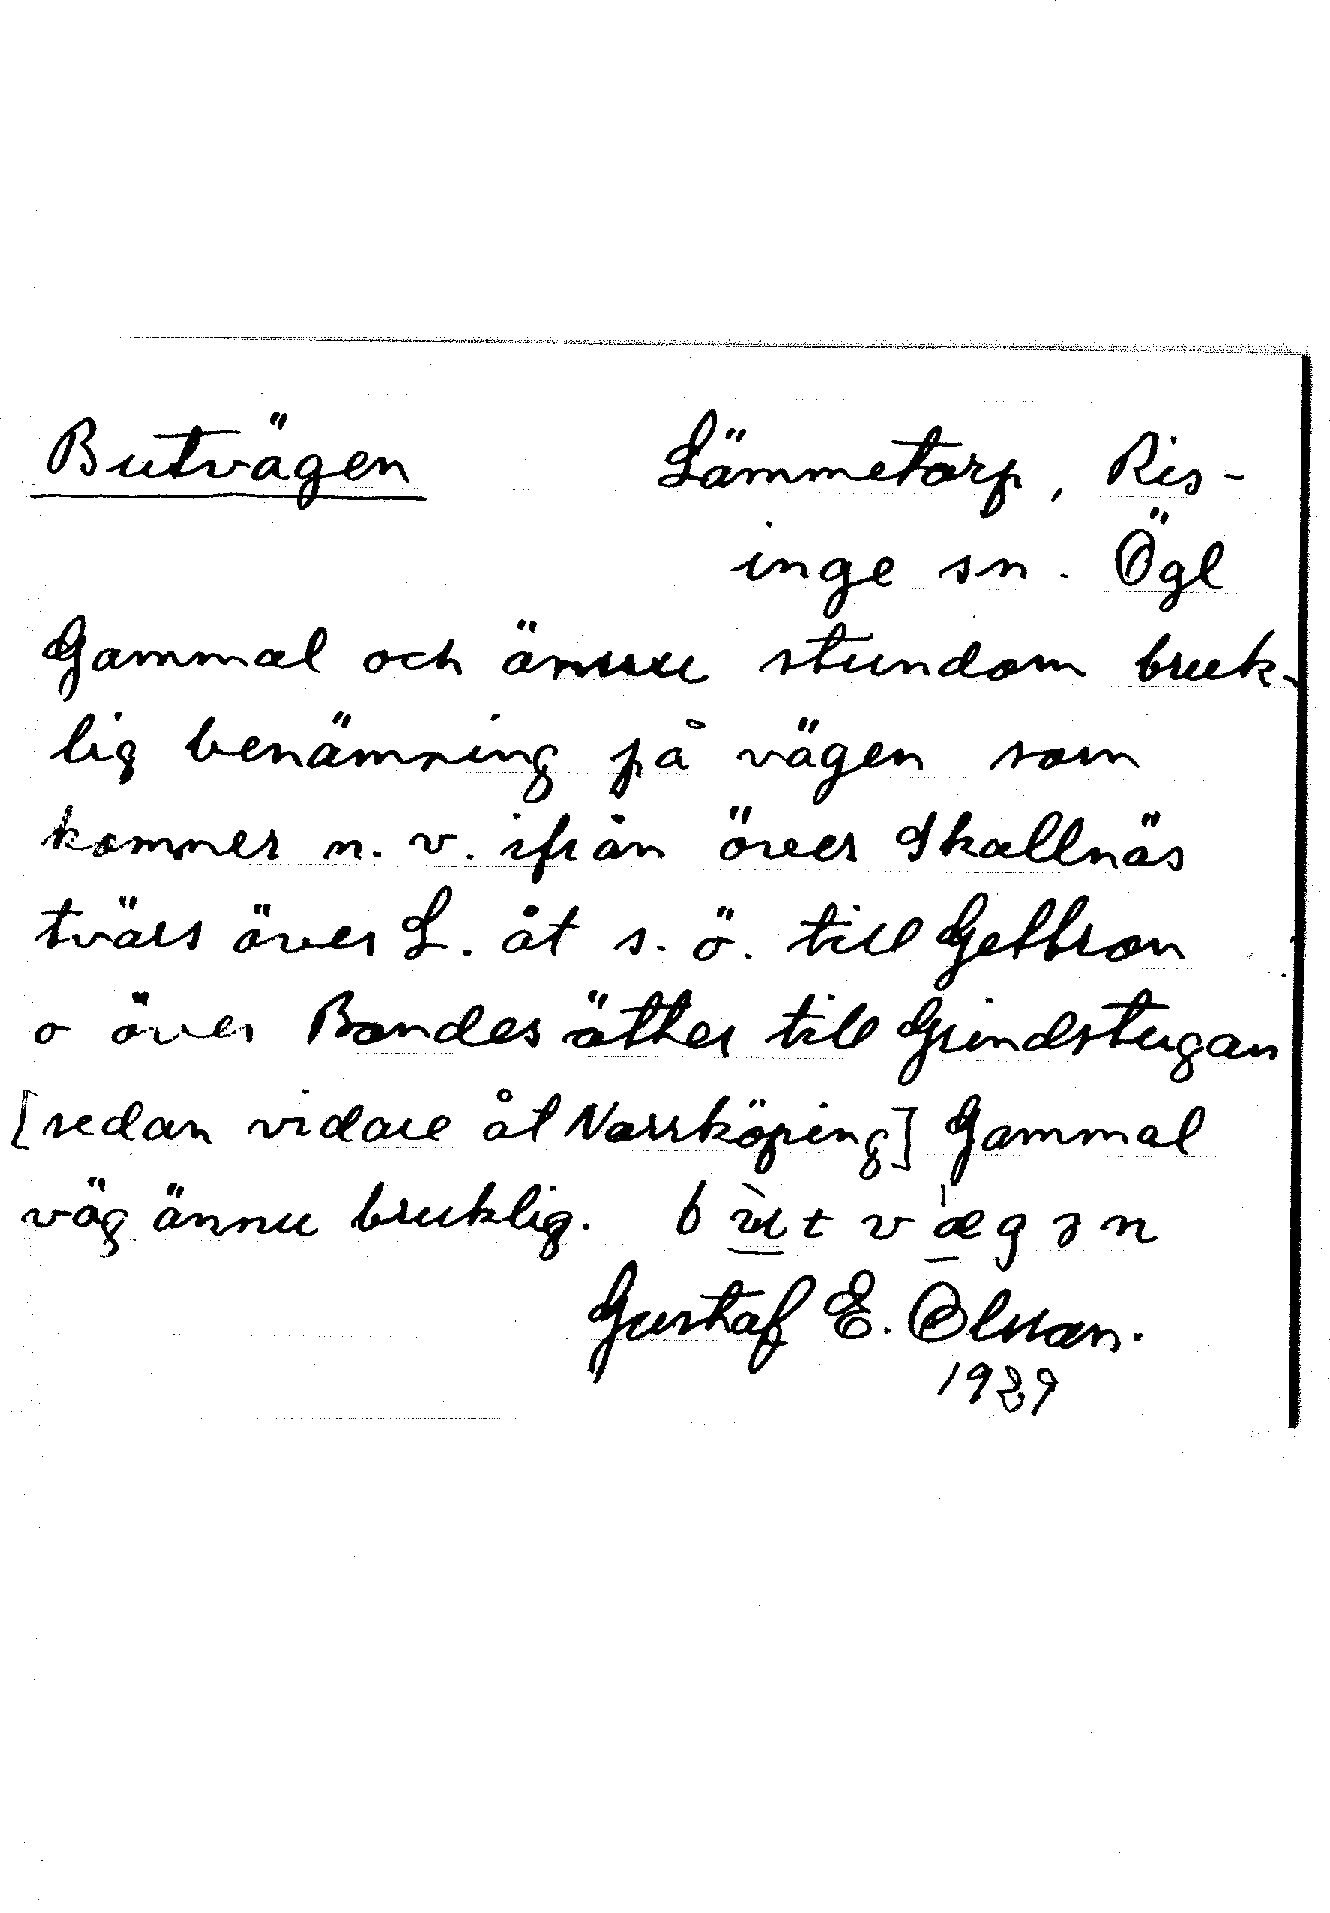 Butvägen Lämmetorp, Ris-
inge sn. Ögl
Gammal och ännu stundom bruk-
lig benämning på vägen som
kommer n. v. ifrån över Skallnäs
tvärs över L. åt s. ö. till Getbron
o över Bondesätter till Grindstugan
[sedan vidare åt Norrköping] Gammal
väg ännu bruklig. bùtvæ̍gən
Gustaf E. Olsson.
1939